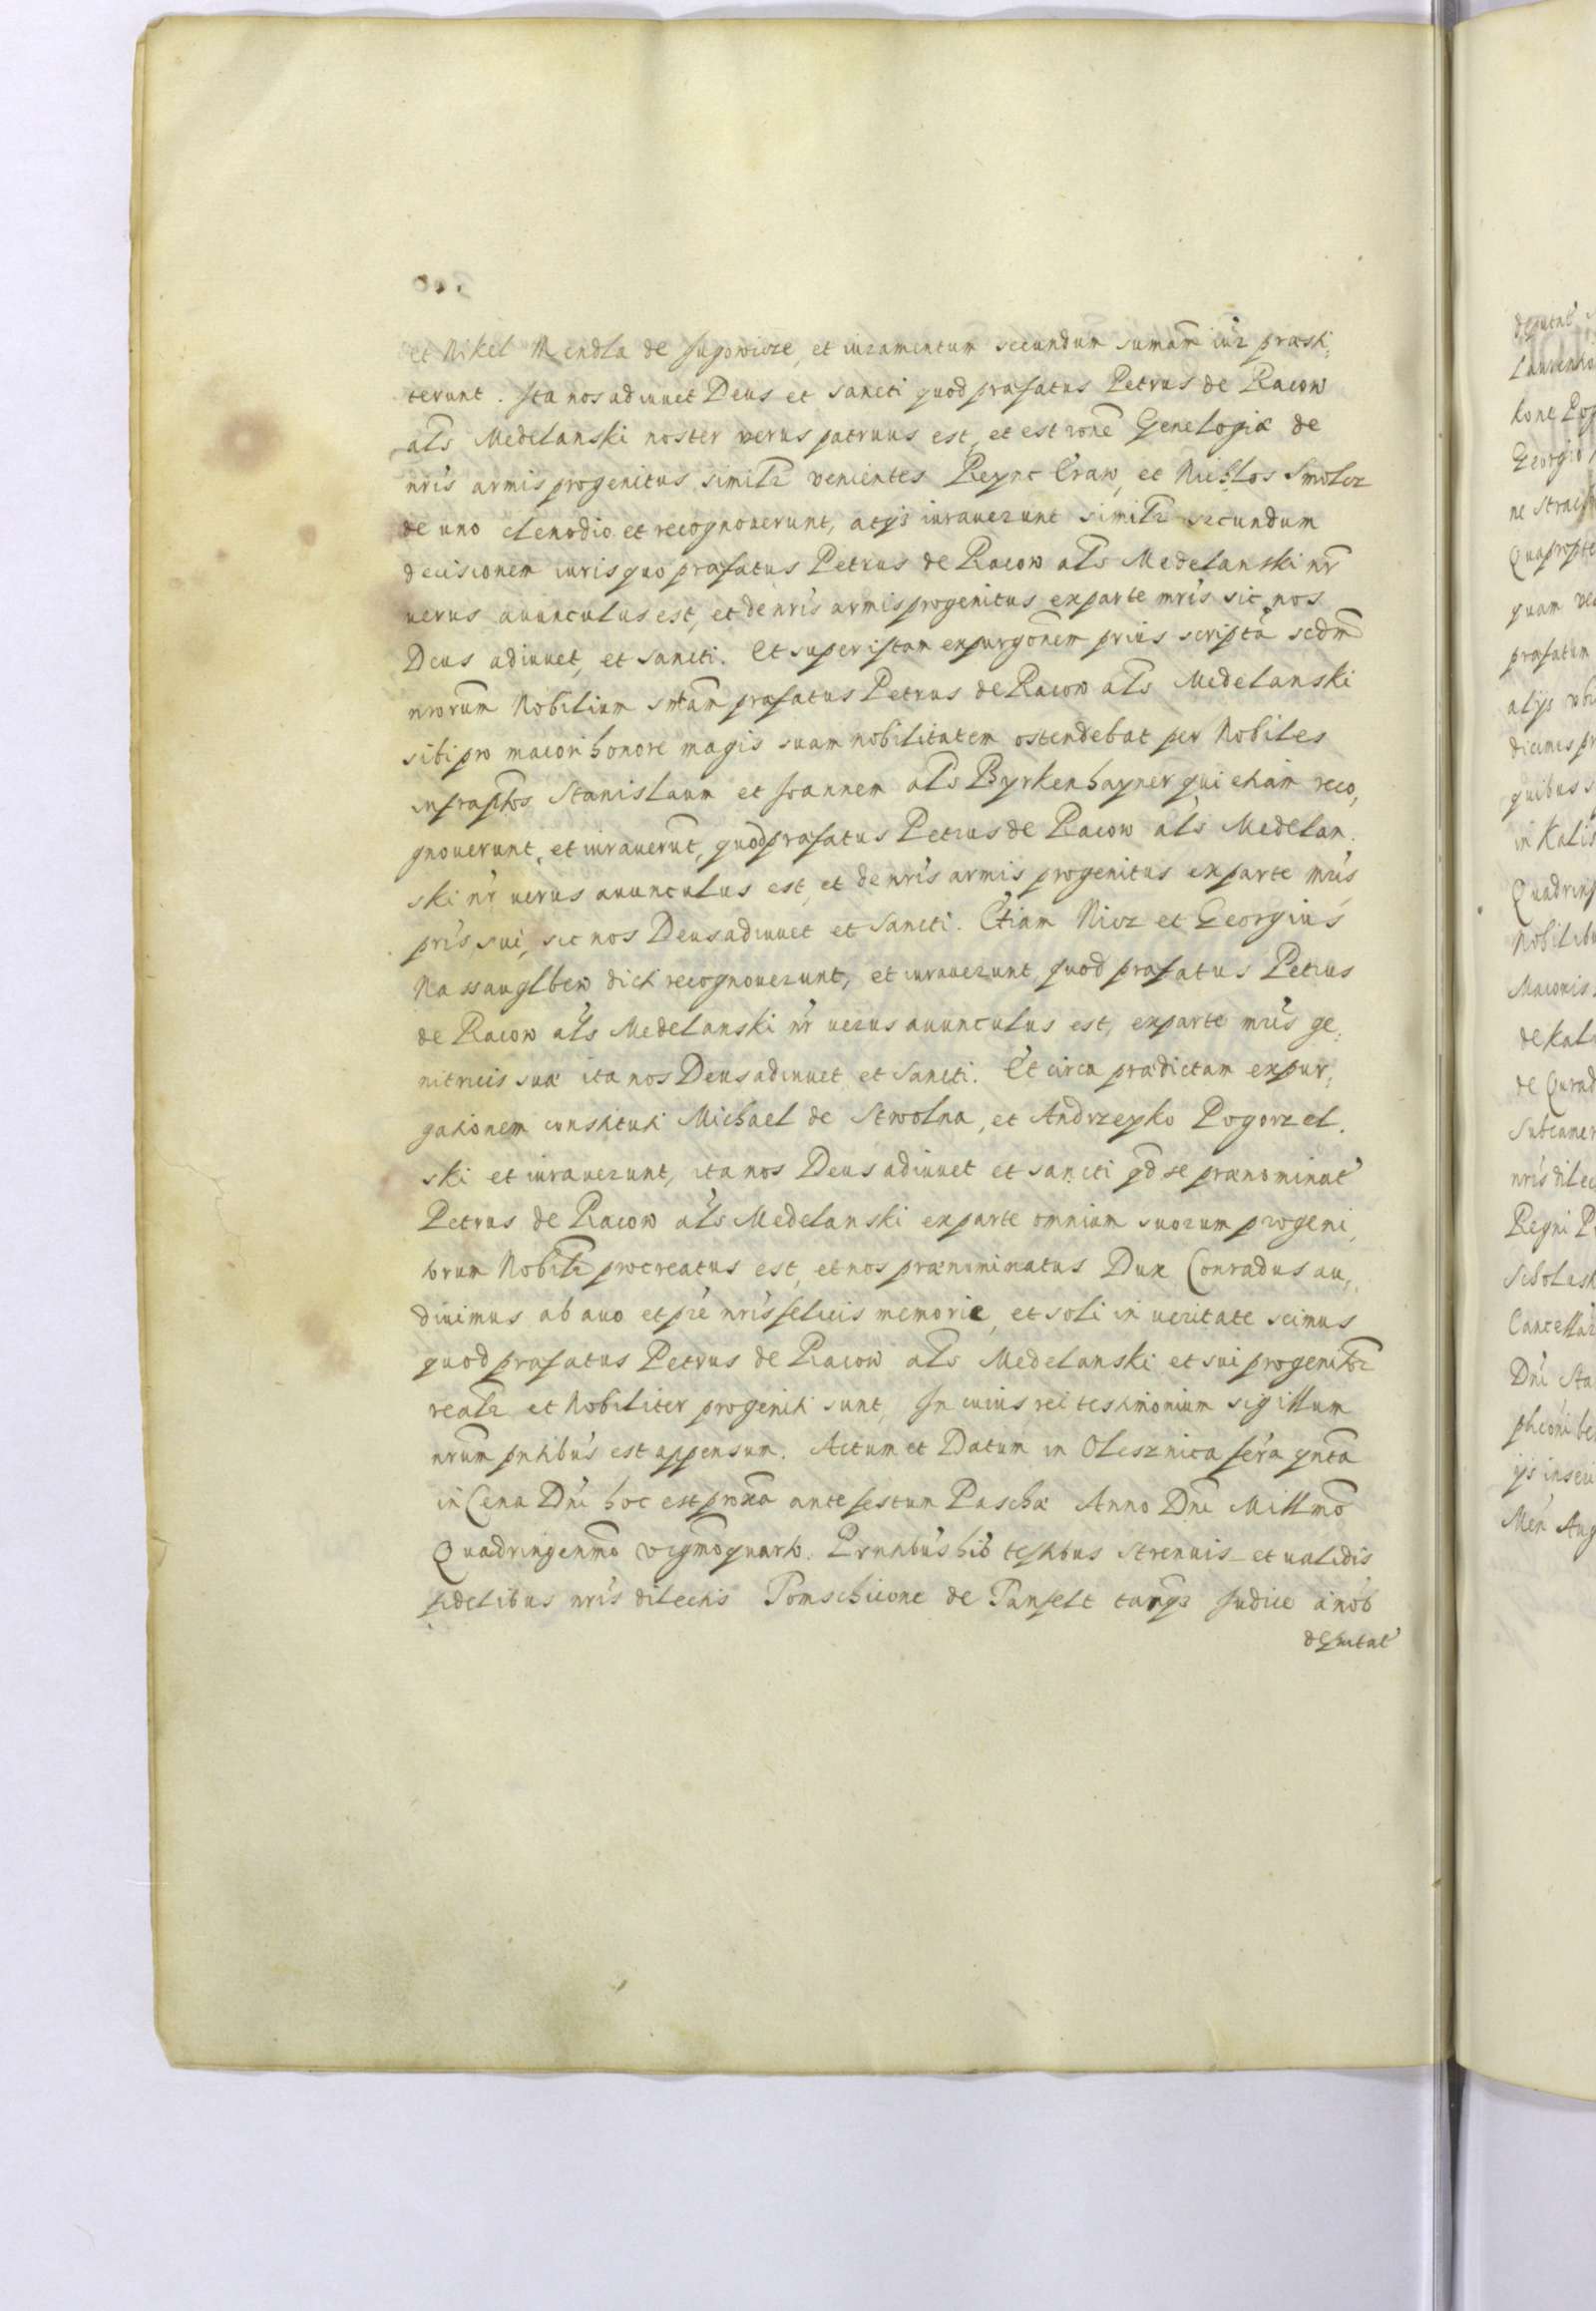 et Nikel Mendla de Jugowicze, et iuramentum secundum sumam̃ iur̃ præsti,
terunt. Ita nos adiuuet Deus et sancti quod præfatus Petrus de Racow
als̃ Medelanski noster verus patruus est, et est rõne Genelogiæ de
nrĩs armis progenitus similr̃ venientes Reync Craw, et Nichlos Smolcz
de uno clenodio et recognouerunt, atq́s iurauerunt similr̃ secundum
decisionem iuris quo præfatus Petrus de Racow als̃ Medelanski nr̃
uerus auunculus est, et de nrĩs armis progenitus ex parte mrĩs sic nos
Deus adiuuet, et sancti. Et super istam expurgõnem prius scriptã scdm̃
nrorum̃ Nobilium sntam̃ præfatus Petrus de Racow als̃ Medelanski
sibi pro maiori honore magis suam nobilitatem ostendebat per Nobiles
infraptos̃ Stanislaum et Joannem als̃ Byrkenhayner qui etiam reco,
gnouerunt, et iurauerũt, quod præfatus Petrus de Racow als̃ Medelan,
ski nr̃ uerus auunculus est, et de nrĩs armis progenitus ex parte mrĩs
prĩs sui, sic nos Deus adiuuet et Sancti. Etiam Nicz et Georgius
Nassauglbew dicti recognouerunt, et iurauerunt, quod præfatus Petrus
de Racow als̃ Medelanski nr̃ uerus auunculus est, ex parte mrĩs ge,
nitricis suæ ita nos Deus adiuuet et Sancti. Et circa prædictam expur,
gationem constituti Michael de Stwolna, et Andrzeyko Pogorzel,
ski et iurauerunt, ita nos Deus adiuuet et sancti qd̃ se prænominat̃
Petrus de Racow als̃ Medelanski ex parte omnium suorum progeni,
torum Nobilr̃ procreatus est, et nos prænominatus Dux Conradus au,
diuimus ab auo et prẽ nrĩs felicis memoriæ, et soli in ueritate scimus
quod præfatus Petrus de Racow als̃ Medelanski et sui progenitor̃
realr̃ et Nobiliter progeniti sunt, In cuius rei testimonium sigillum
nrum̃ pntibus̃ est appensum. Actum et Datum in Olesznica ferã qnta̅
in Cena Dnĩ hoc est proxã ante festum Paschæ Anno Dnĩ Millmõ
Quadringenmõ vigmõquarto. Prntibus̃ his testibus strenuis et ualidis
fidelibus nrĩs dilectis Tomschicone de Tanfelt tanq̃ Judice a nob̃
deputat̃